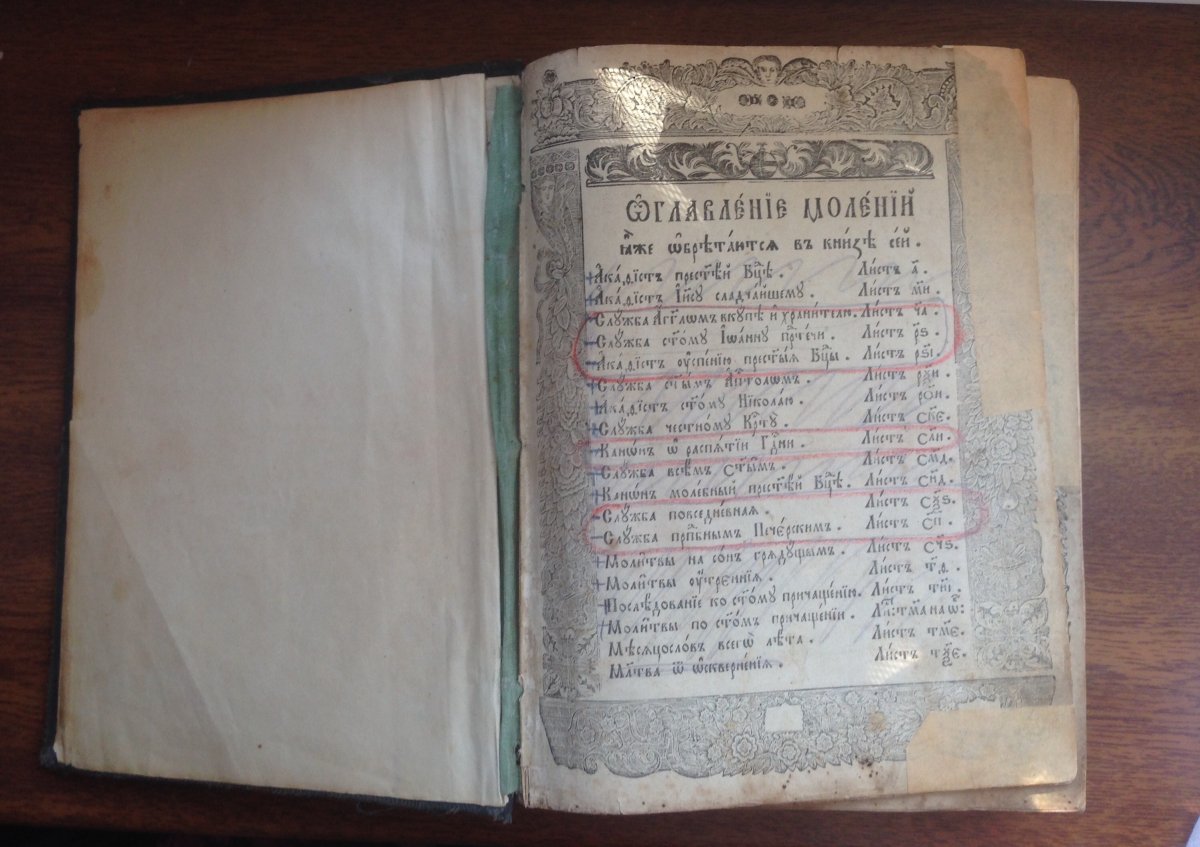 Ѡ҆ГЛАВЛЕ́НЇЕ МОЛЕ́НЇЙ
ꙗ҆́же ѡ҆брѣта́ются въ кни́зѣ се́й .
А҆ка́ѳїстъ прест҃ѣ́й Бц҃ѣ . Ли́стъ а҃ .
А҆ка́ѳїстъ І҆и҃су сладча́йшему . Ли́стъ м҃и .
Слꙋ́жба А҆́гг҃лѡмъ вкꙋ́пѣ и҆ храни́телю . Ли́стъ ч҃а .
Слꙋ́жба ст҃о́мꙋ І҆ѡа́ннꙋ прⷣте́чи . Ли́стъ р҃ѕ .
А҆ка́ѳїстъ ᲂу҆спе́нїю прест҃ы́ѧ Бц҃ы . Ли́стъ рѕ҃і .
Слꙋ́жба ст҃ы́мъ А҆пⷭ҇толѡмъ . Ли́стъ рѯ҃и .
А҆ка́ѳїстъ ст҃о́мꙋ Нїкола́ю . Ли́стъ ро҃и .
Слꙋ́жба честно́мꙋ Крⷭ҇тꙋ̀ . Ли́стъ ск҃є .
Канѡ́нъ ѡ҆ распѧ́тїи Гдⷭ҇ни . Ли́стъ сл҃и .
Слꙋ́жба всѣ̑мъ ст҃ы̑мъ . Ли́стъ см҃д .
Канѡ́нъ моле́бный прест҃ѣ́й Бц҃ѣ . Ли́стъ сн҃д .
Слꙋ́жба повседне́внаѧ . Ли́стъ сѯ҃ѕ .
Слꙋ́жба прпⷣбнымъ Пече́рскимъ . Ли́стъ сп҃ .
Мѡли́твы на со́нъ грѧдꙋ́щымъ . Ли́стъ сч҃ѕ .
Мѡли́твы ᲂу҆́трєннїѧ . Ли́стъ т҃ѳ .
Послѣ́дованїе ко ст҃о́мꙋ причаще́нїю . Ли́стъ ти҃і .
Мѡли́твы по ст҃о́мъ причаще́нїи . Лиⷭ҇: тм҃а на ѡ҆б:
Мѣсѧцосло́въ всегѡ̀ лѣ́та . Ли́стъ тм҃є .
Мл҃тва ѿ ѡ҆скверне́нїѧ . Ли́стъ тѯ҃є .